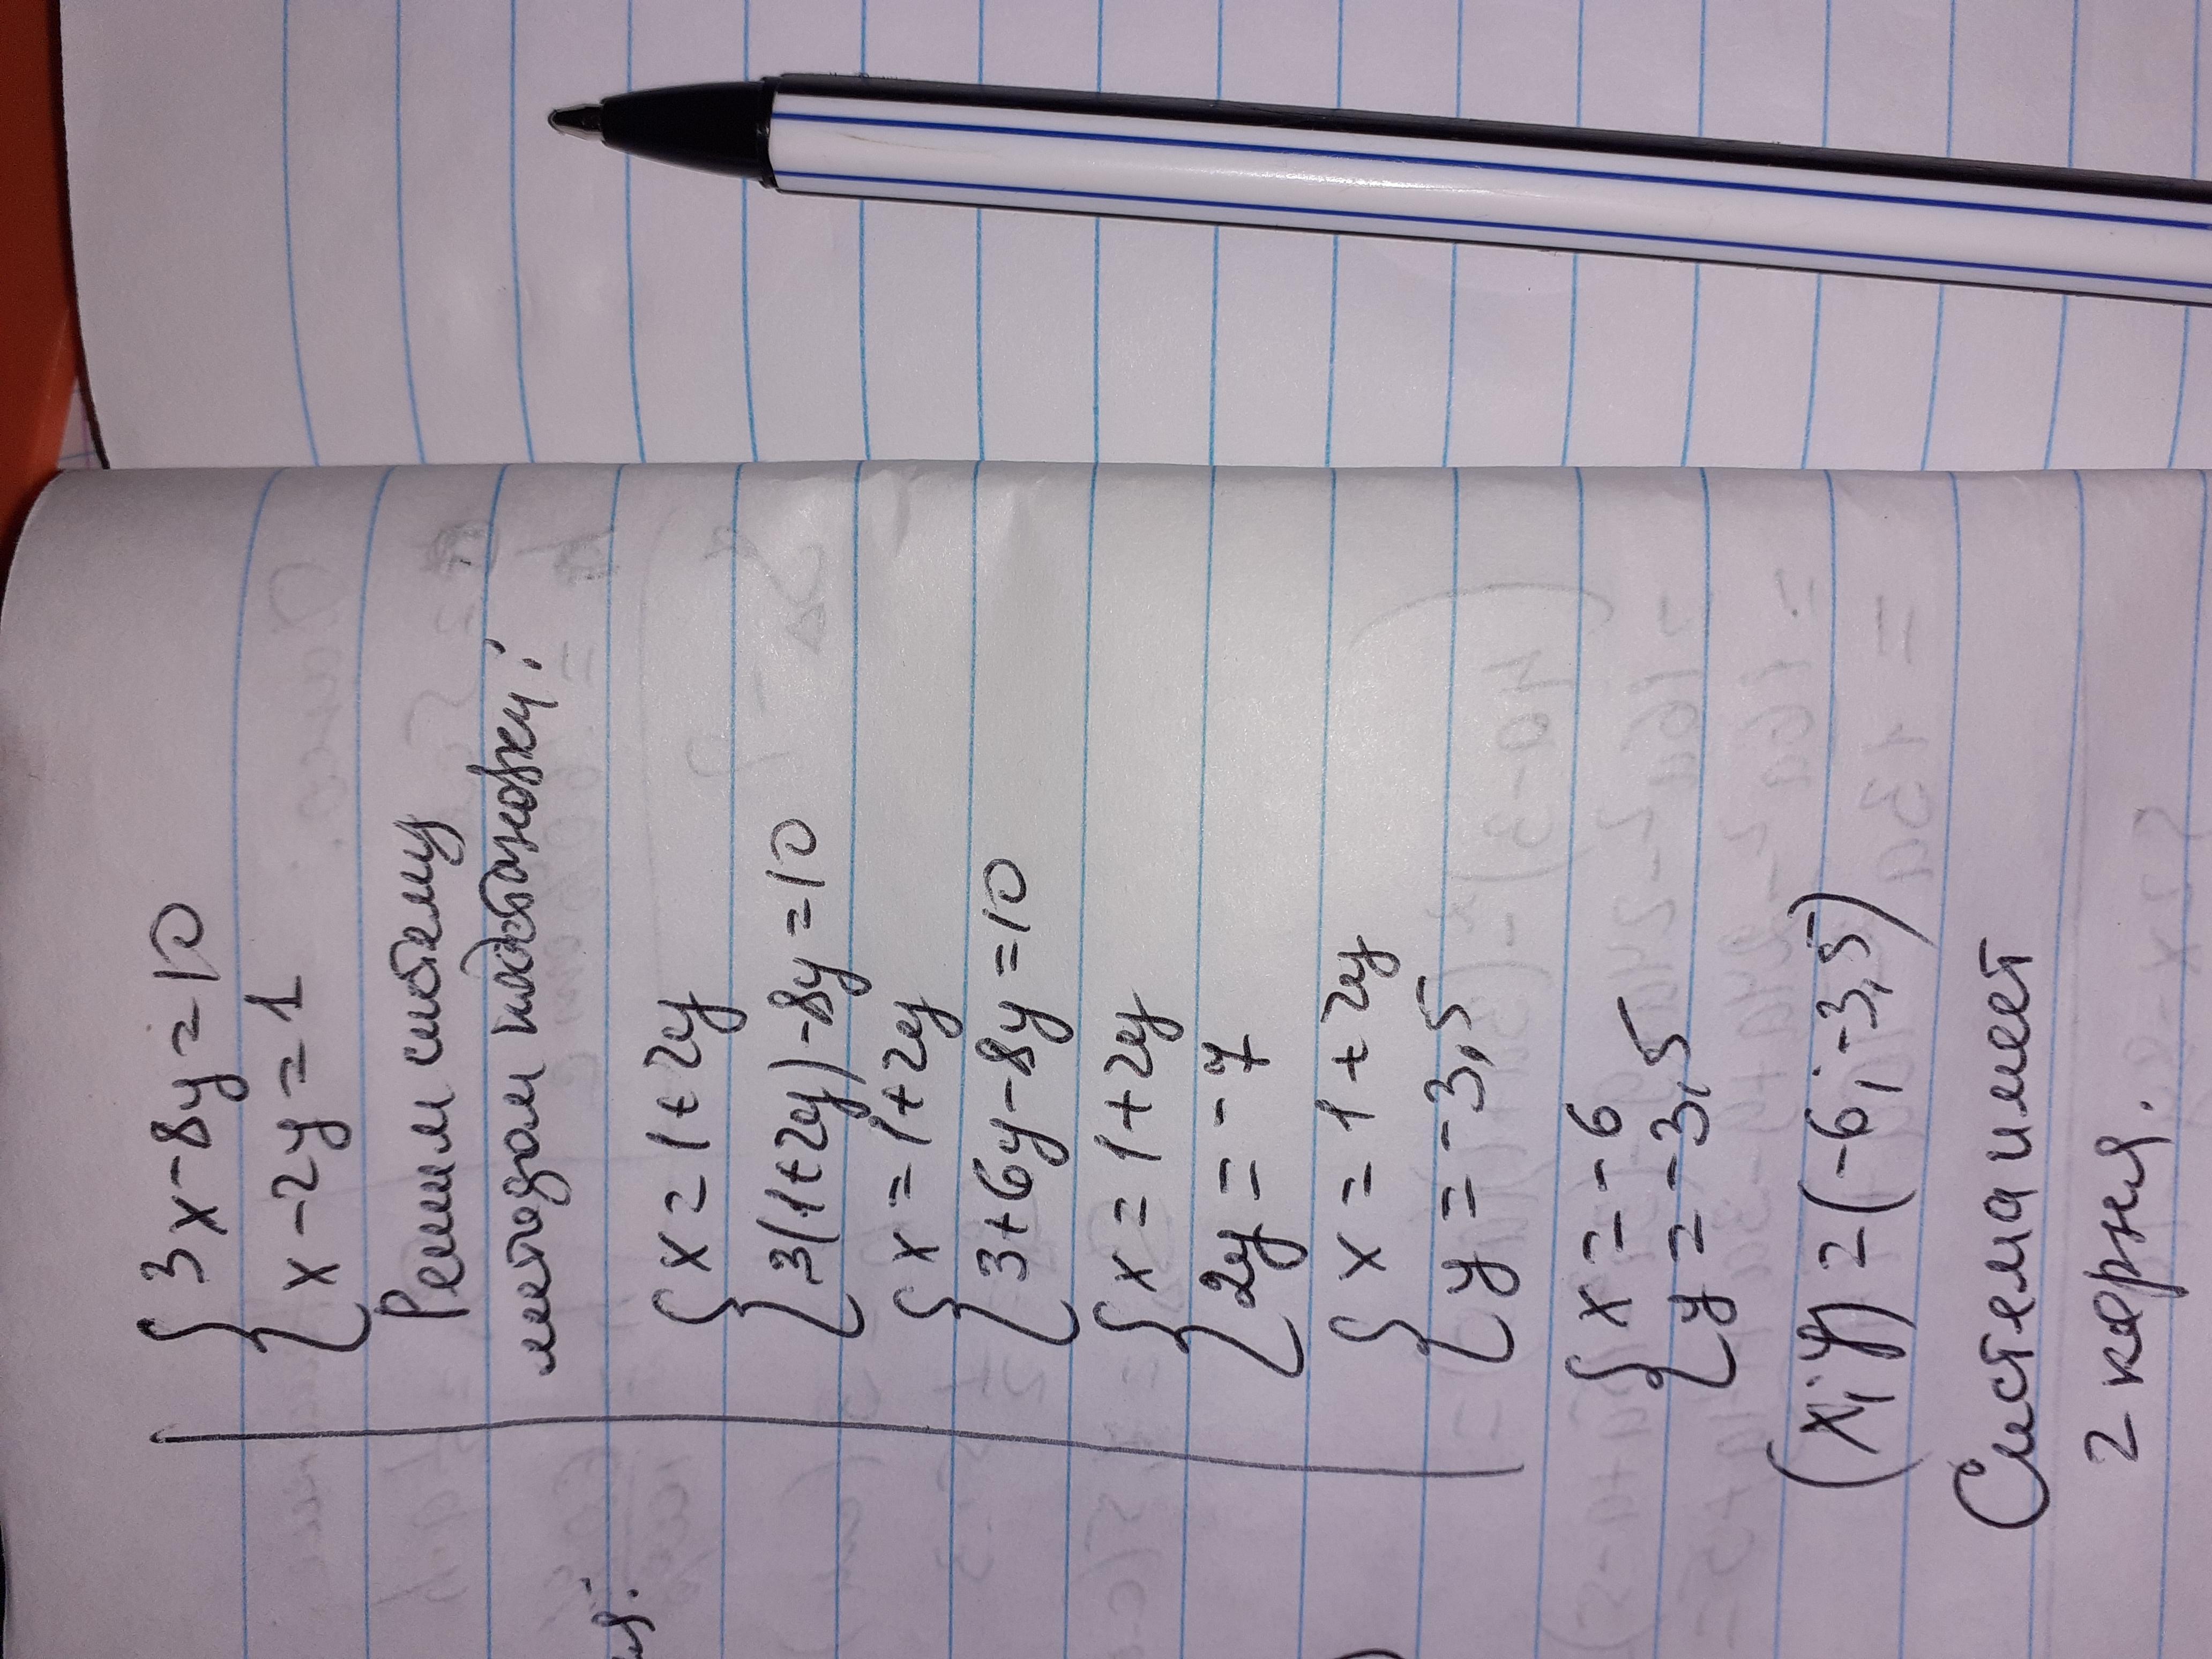 { 3x-8y=10
{ x-2y=1
Решим систему
методом подстановки:
{ x=1+2y
{ 3(1+2y)-8y=10
{ x=1+2y
{ 3+6y-8y=10
{ x=1+2y
{ 2y=-7
{ x=1+2y
{ y=-3,5
{ x=-6
{ y=-3,5
(x;y)=(-6;-3,5)
Система имеет
2 корня.